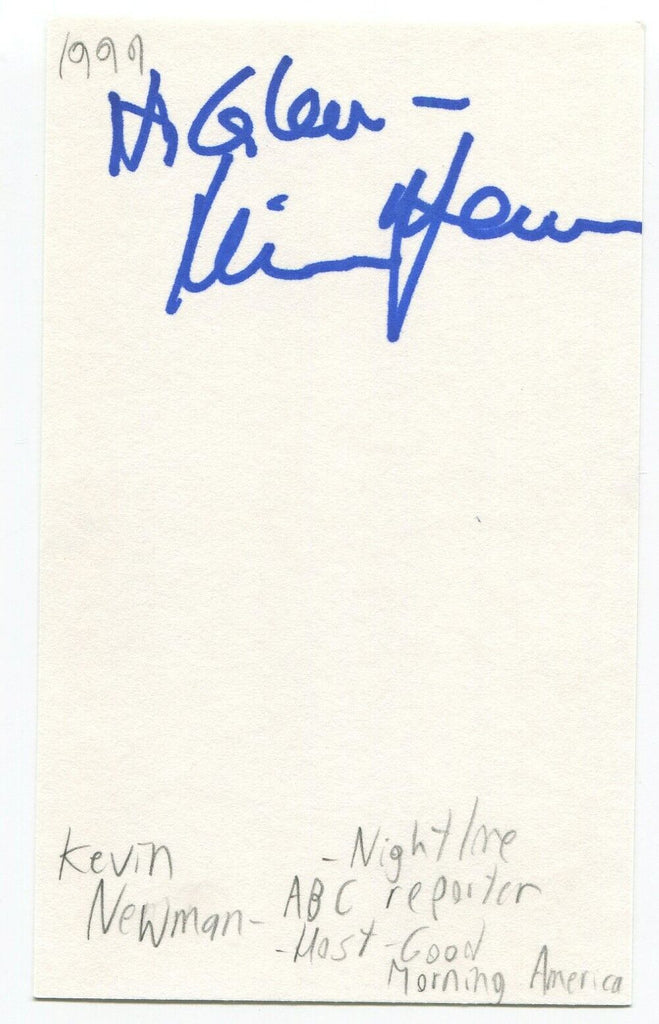 1999
Hi Glen -
Kevin Newman
Kevin - Nightline
Newman - ABC reporter
- Host - Good
Morning America